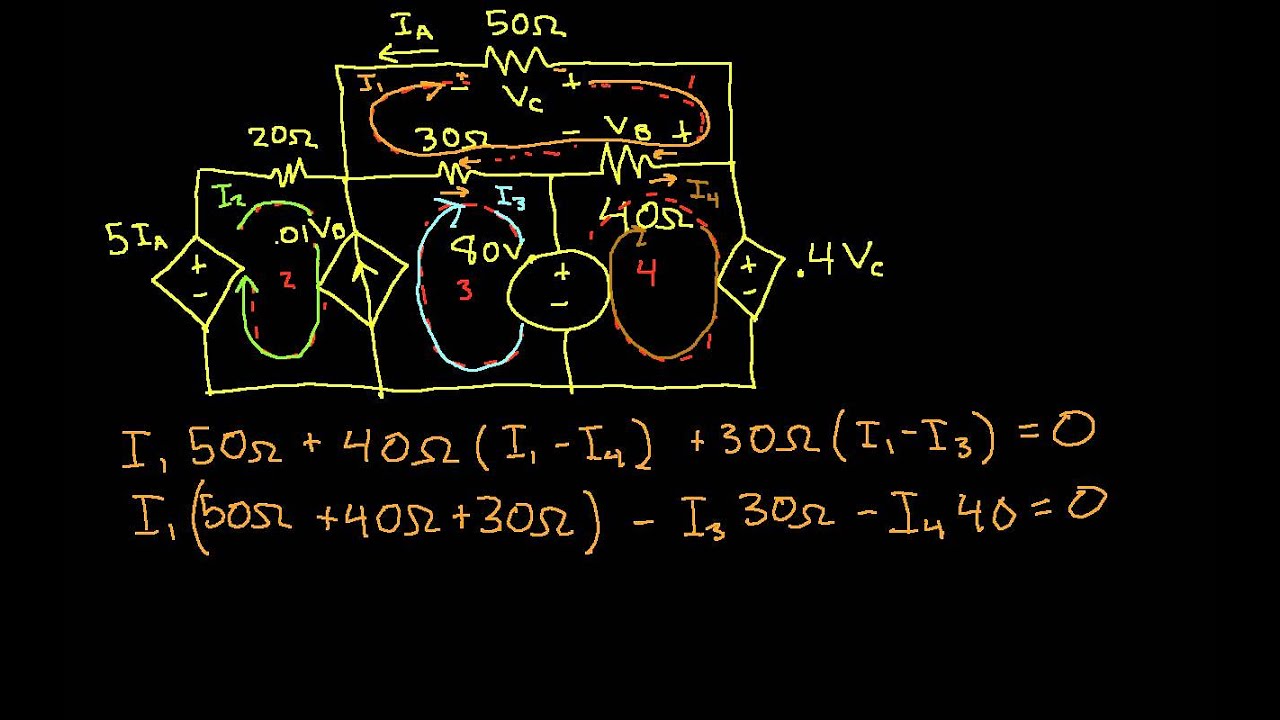 I_A 50Ω
I₁ ± + 1
V_C
20Ω 30Ω - V_B +
I₂ I₃ I₄
5I_A .01V_B 80V 40Ω
+ - 2 3 + - 4 + - .4V_C
I₁ 50Ω + 40Ω (I₁ - I₄) + 30Ω (I₁ - I₃) = 0
I₁ (50Ω + 40Ω + 30Ω) - I₃ 30Ω - I₄ 40 = 0